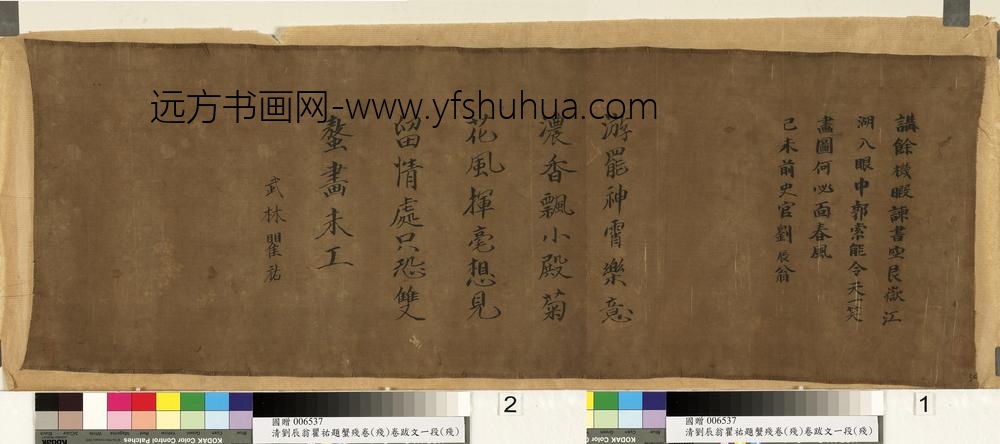 講餘機暇諫書空艮嶽江
湖入眼中郭索能令天一笑
畫圖何必面春風
己未前史官劉辰翁
游罷神霄樂意
濃香飄小殿菊
花風揮毫想見
留情處只恐雙
螯畫未工
武林瞿祐
远方书画网-www.yfshuhua.com
2
1
國贈 006537
清劉辰翁瞿祐題蟹殘卷(殘)卷跋文一段(殘)
國贈 006537
清劉辰翁瞿祐題蟹殘卷(殘)卷跋文一段(殘)
KODAK Color Control Patches
KODAK Color Control Patches